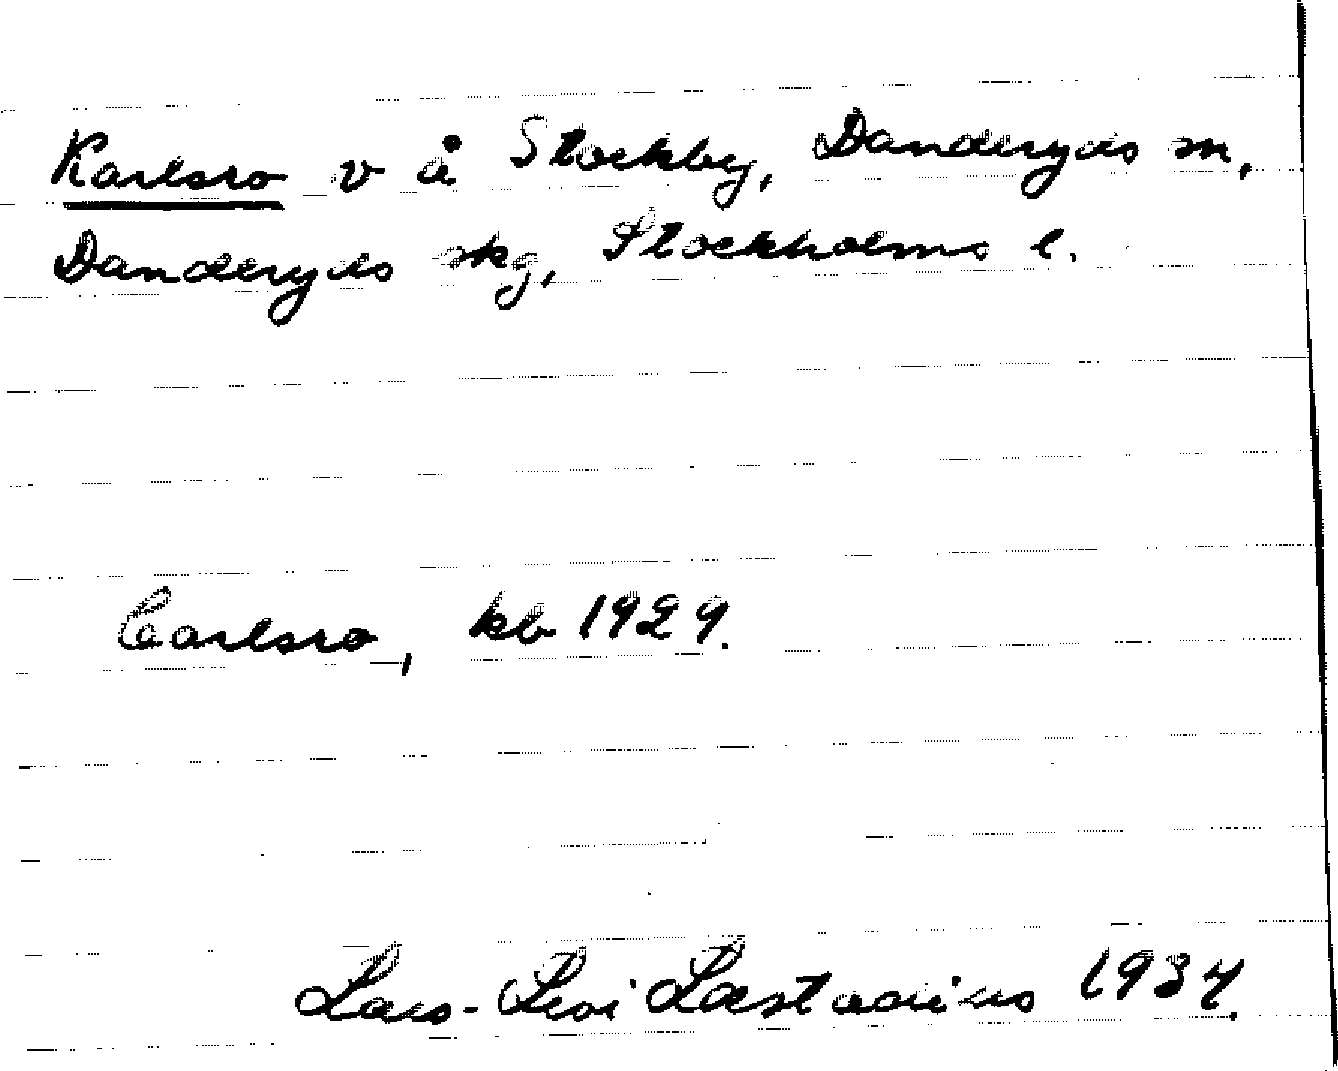 Karlsro v å Stockby, Danderyds sn,
Danderyds skg, Stockholms l.
Carlsro, kb 1929.
Lars-Levi Læstadius 1934.